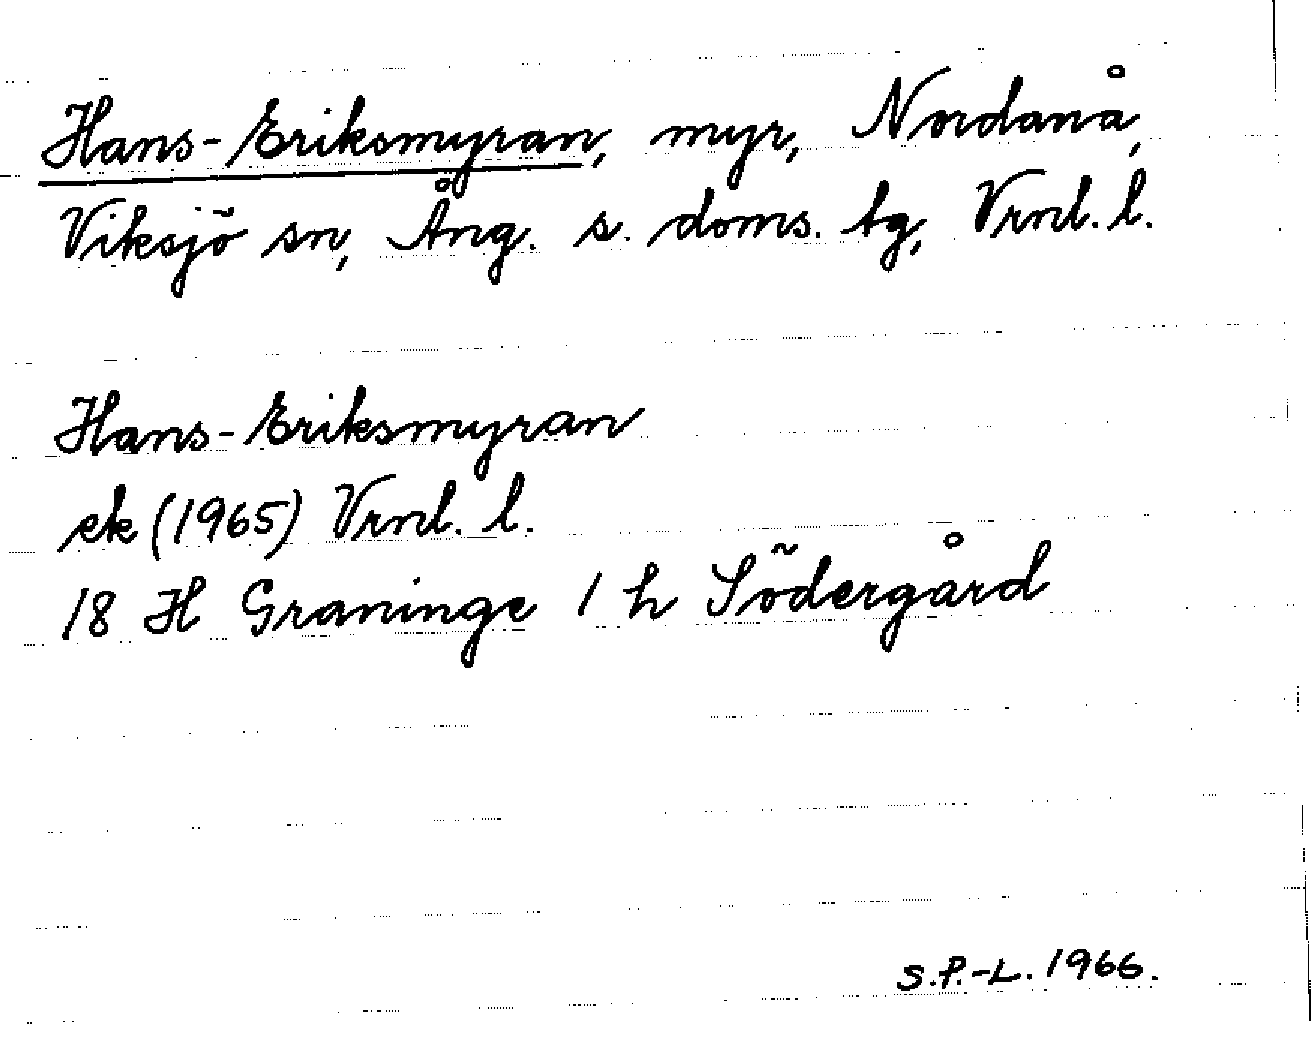 Hans-Eriksmyran, myr, Nordanå,
Viksjö sn, Ång. s. doms. tg, Vrnl. l.
Hans-Eriksmyran
ek (1965) Vrnl. l.
18 H Graninge 1 h Södergård
S.P.-L. 1966.